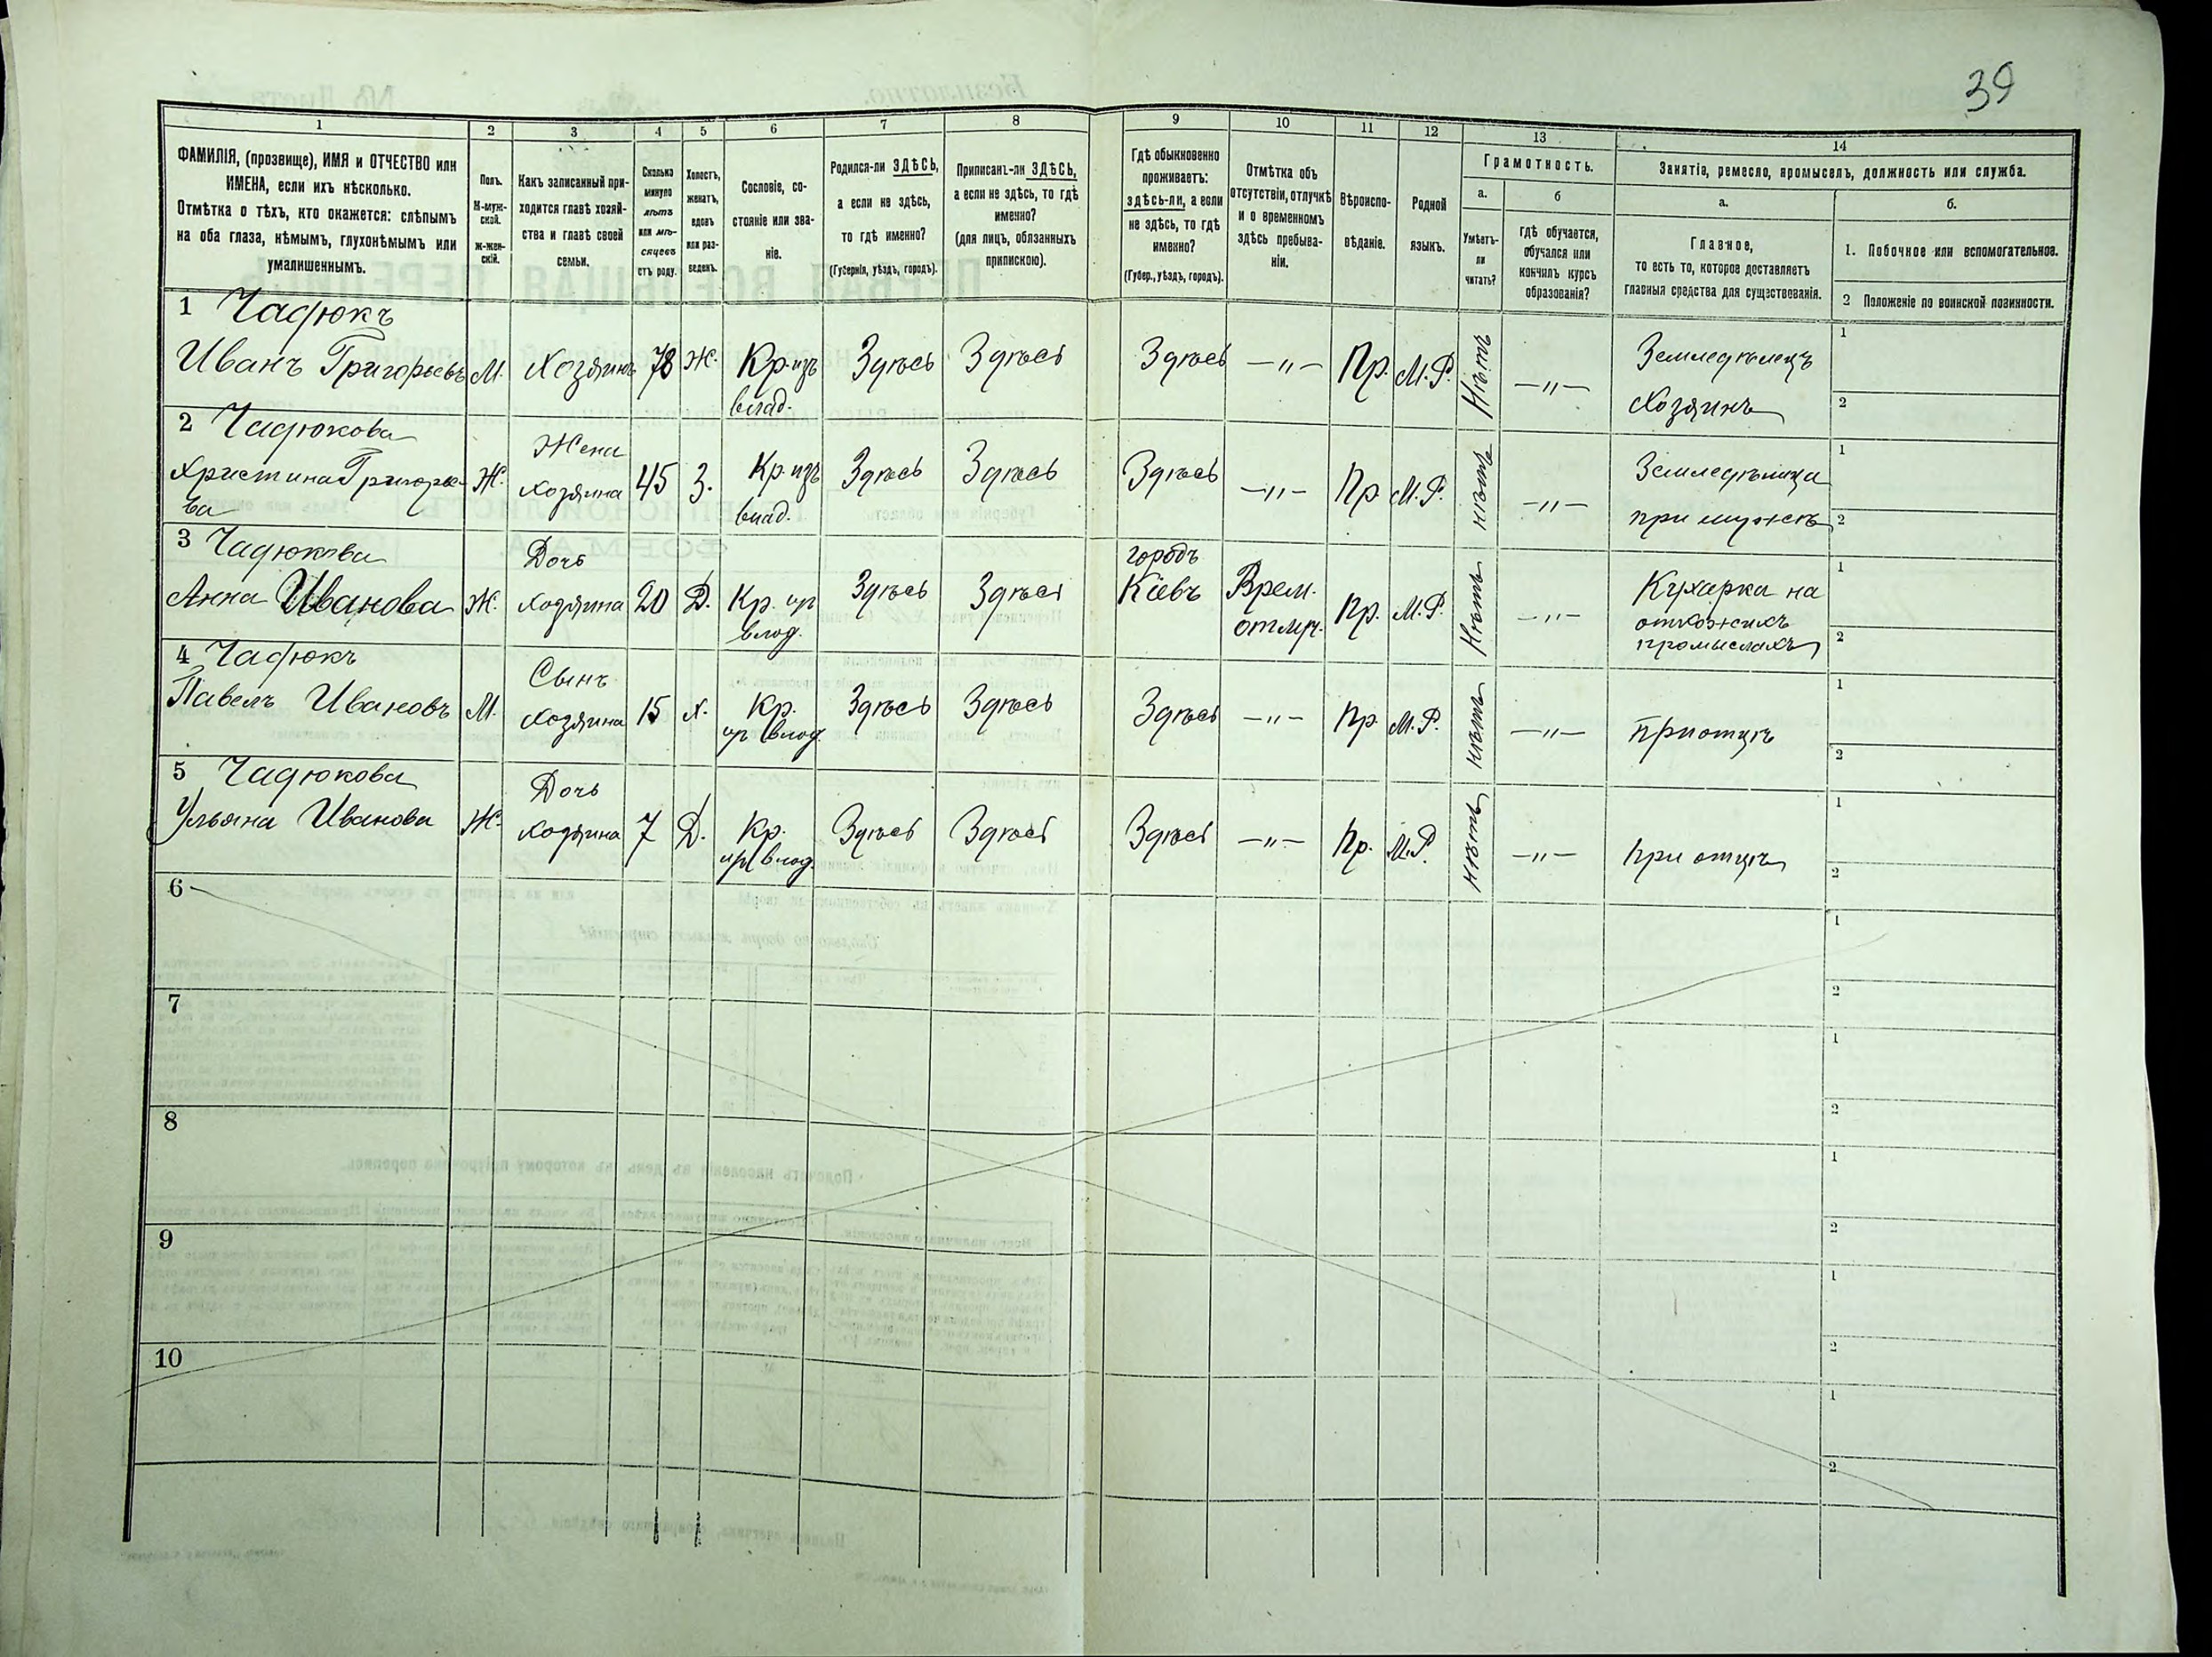 39
1 2 3 4 5 6 7 8 9 10 11 12 13 14
ФАМИЛІЯ, (прозвище), ИМЯ и ОТЧЕСТВО или
ИМЕНА, если ихъ нѣсколько.
Отмѣтка о тѣхъ, кто окажется: слѣпымъ
на оба глаза, нѣмымъ, глухонѣмымъ или
умалишеннымъ.
Полъ.
М-муж-
ской.
Ж-жен-
скій.
Какъ записанный при-
ходится главѣ хозяй-
ства и главѣ своей
семьи.
Сколько
минуло
лѣтъ
или мѣ-
сяцевъ
отъ роду.
Холостъ,
женатъ,
вдовъ
или раз-
веденъ.
Сословіе, со-
стояніе или зва-
ніе.
Родился-ли ЗДѢСЬ,
а если не здѣсь,
то гдѣ именно?
(Губернія, уѣздъ, городъ).
Приписанъ-ли ЗДѢСЬ,
а если не здѣсь, то гдѣ
именно?
(для лицъ, обязанныхъ
припискою).
Гдѣ обыкновенно
проживаетъ:
здѣсь-ли, а если
не здѣсь, то гдѣ
именно?
(Губер., уѣздъ, городъ).
Отмѣтка объ
отсутствіи, отлучкѣ
и о временномъ
здѣсь пребыва-
ніи.
Вѣроиспо-
вѣданіе.
Родной
языкъ.
Грамотность.
а.
Умѣетъ-
ли
читать?
б
гдѣ обучается,
обучался или
кончилъ курсъ
образованія?
Занятіе, ремесло, промыселъ, должность или служба.
а.
Главное,
то есть то, которое доставляетъ
главныя средства для существованія.
б.
1. Побочное или вспомогательное.
2 Положеніе по воинской повинности.
1 Чадюкъ
Иванъ Григорьевъ М. Хозяинъ 78 Ж. Кр. изъ
влад.
Здѣсь Здѣсь Здѣсь —"— Пр. М.Р. Нѣтъ —"— Земледѣлецъ
Хозяинъ
1
2
2 Чадюкова
Христина Григорье-
ва
Ж. Жена
хозяина 45 З. Кр изъ
влад.
Здѣсь Здѣсь Здѣсь —"— Пр М.Р. нѣтъ —"— Земледѣлица
при мужѣ
1
2
3 Чадюкова
Анна Иванова Ж. Дочь
хозяина 20 Д. Кр. из
влад.
Здѣсь Здѣсь городъ
Кіевъ Врем.
отлуч. Пр. М.Р. Нѣтъ —"— Кухарка на
отхожихъ
промыслахъ
1
2
4 Чадюкъ
Павелъ Ивановъ М. Сынъ
хозяина 15 х. Кр.
из влад.
Здѣсь Здѣсь Здѣсь —"— Пр М.Р. нѣтъ —"— При отцѣ
1
2
5 Чадюкова
Ульяна Иванова Ж. Дочь
хозяина 7 Д. Кр.
из влад.
Здѣсь Здѣсь Здѣсь —"— Пр. М.Р. нѣтъ —"— при отцѣ
1
2
6
1
2
7
1
2
8
1
2
9
1
2
10
1
2